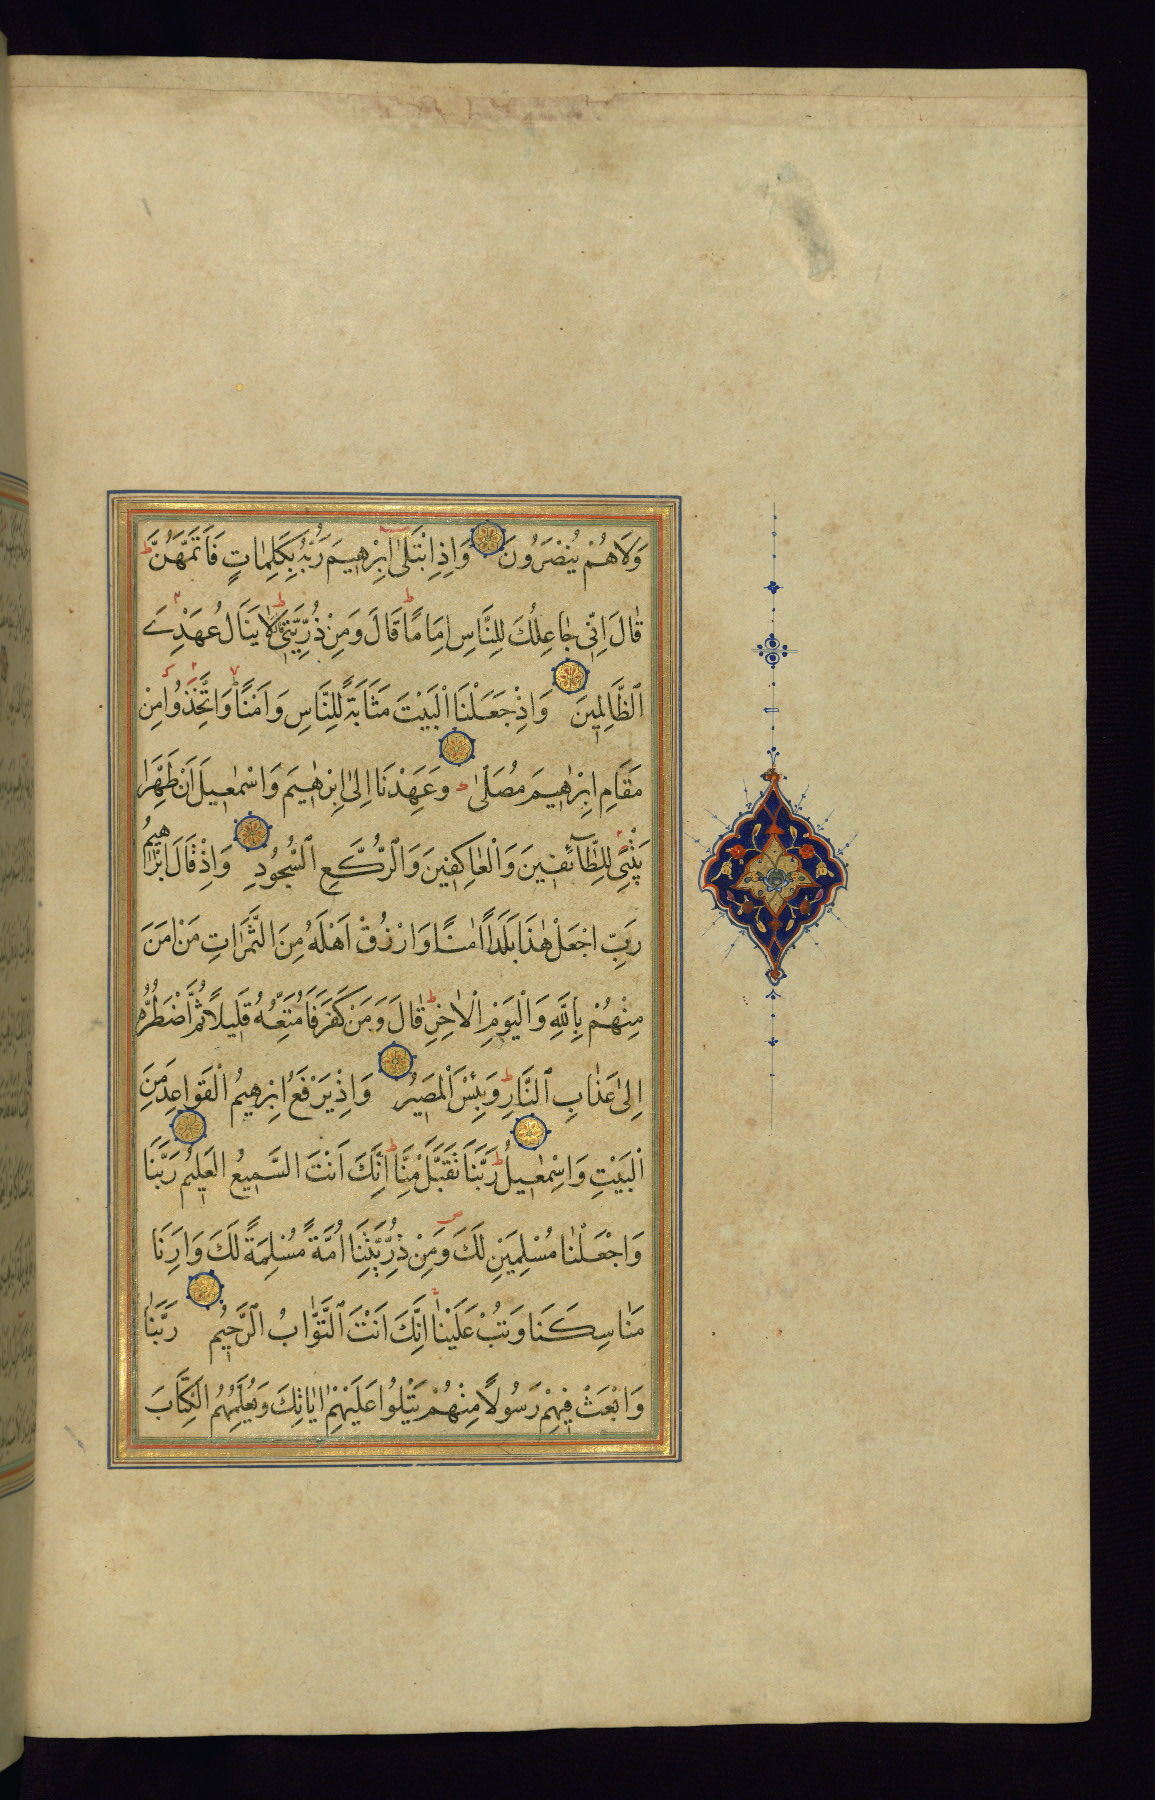 وَلَا هُمْ يُنْصَرُونَ وَاِذِ ابْتَلٰى اِبْرٰهِيمَ رَبُّهُ بِكَلِمَاتٍ فَاَتَمَّهُنَّ ط
قَالَ اِنِّي جَاعِلُكَ لِلنَّاسِ اِمَامًا ط قَالَ وَمِنْ ذُرِّيَّتِي ط قَالَ لَا يَنَالُ عَهْدِي
الظَّالِمِينَ وَاِذْ جَعَلْنَا الْبَيْتَ مَثَابَةً لِلنَّاسِ وَاَمْنًا وَاتَّخِذُوا مِنْ
مَقَامِ اِبْرٰهِيمَ مُصَلًّى ط وَعَهِدْنَا اِلٰى اِبْرٰهِيمَ وَاسْمٰعِيلَ اَنْ طَهِّرَا
بَيْتِيَ لِلطَّآئِفِينَ وَالْعَاكِفِينَ وَالرُّكَّعِ السُّجُودِ وَاِذْ قَالَ اِبْرٰهِيمُ
رَبِّ اجْعَلْ هٰذَا بَلَدًا اٰمِنًا وَارْزُقْ اَهْلَهُ مِنَ الثَّمَرَاتِ مَنْ اٰمَنَ
مِنْهُمْ بِاللّٰهِ وَالْيَوْمِ الْاٰخِرِ ط قَالَ وَمَنْ كَفَرَ فَاُمَتِّعُهُ قَلِيلًا ثُمَّ اَضْطَرُّهُ
اِلٰى عَذَابِ النَّارِ ط وَبِئْسَ الْمَصِيرُ وَاِذْ يَرْفَعُ اِبْرٰهِيمُ الْقَوَاعِدَ مِنَ
الْبَيْتِ وَاِسْمٰعِيلُ ط رَبَّنَا تَقَبَّلْ مِنَّا ط اِنَّكَ اَنْتَ السَّمِيعُ الْعَلِيمُ رَبَّنَا
وَاجْعَلْنَا مُسْلِمَيْنِ لَكَ وَمِنْ ذُرِّيَّتِنَا اُمَّةً مُسْلِمَةً لَكَ ص وَاَرِنَا
مَنَاسِكَنَا وَتُبْ عَلَيْنَا اِنَّكَ اَنْتَ التَّوَّابُ الرَّحِيمُ رَبَّنَا
وَابْعَثْ فِيهِمْ رَسُولًا مِنْهُمْ يَتْلُوا عَلَيْهِمْ اٰيَاتِكَ وَيُعَلِّمُهُمُ الْكِتَابَ